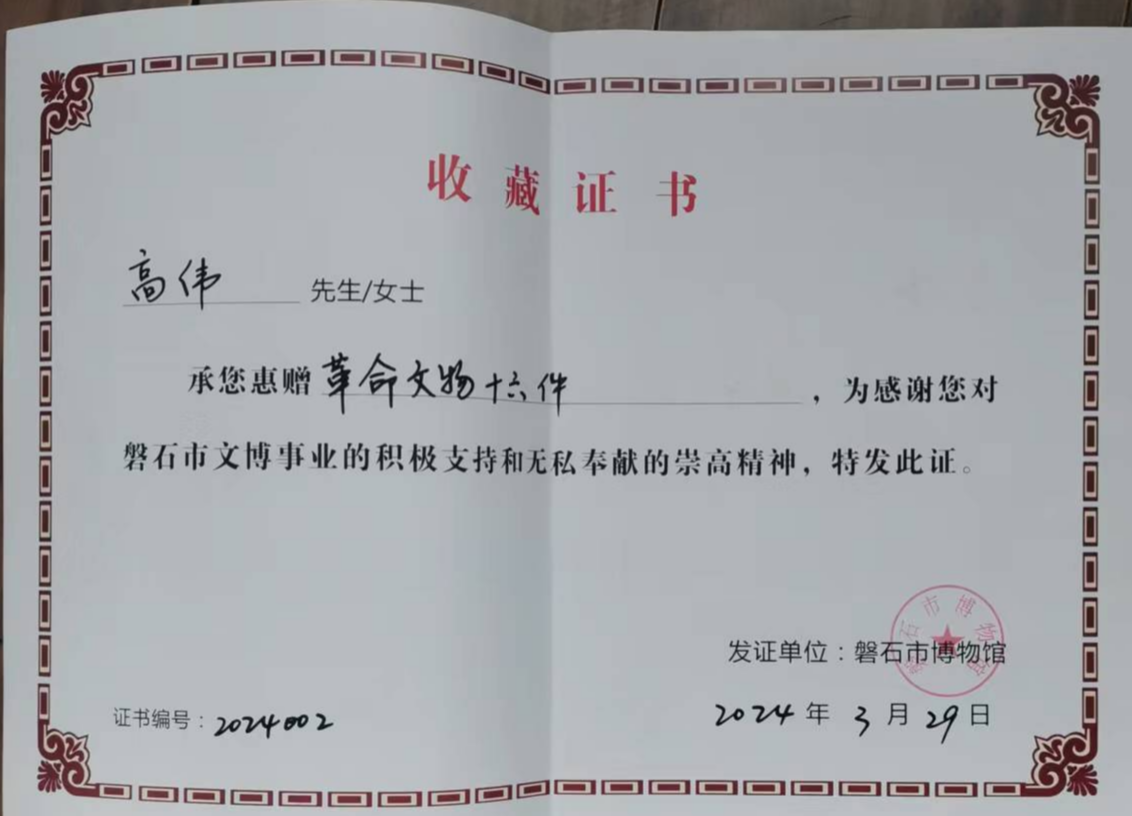 收藏证书
高伟 先生/女士
承您惠赠革命文物十六件，为感谢您对
磐石市文博事业的积极支持和无私奉献的崇高精神，特发此证。
磐石市博物馆
发证单位：磐石市博物馆
证书编号：2024002
2024年3月29日